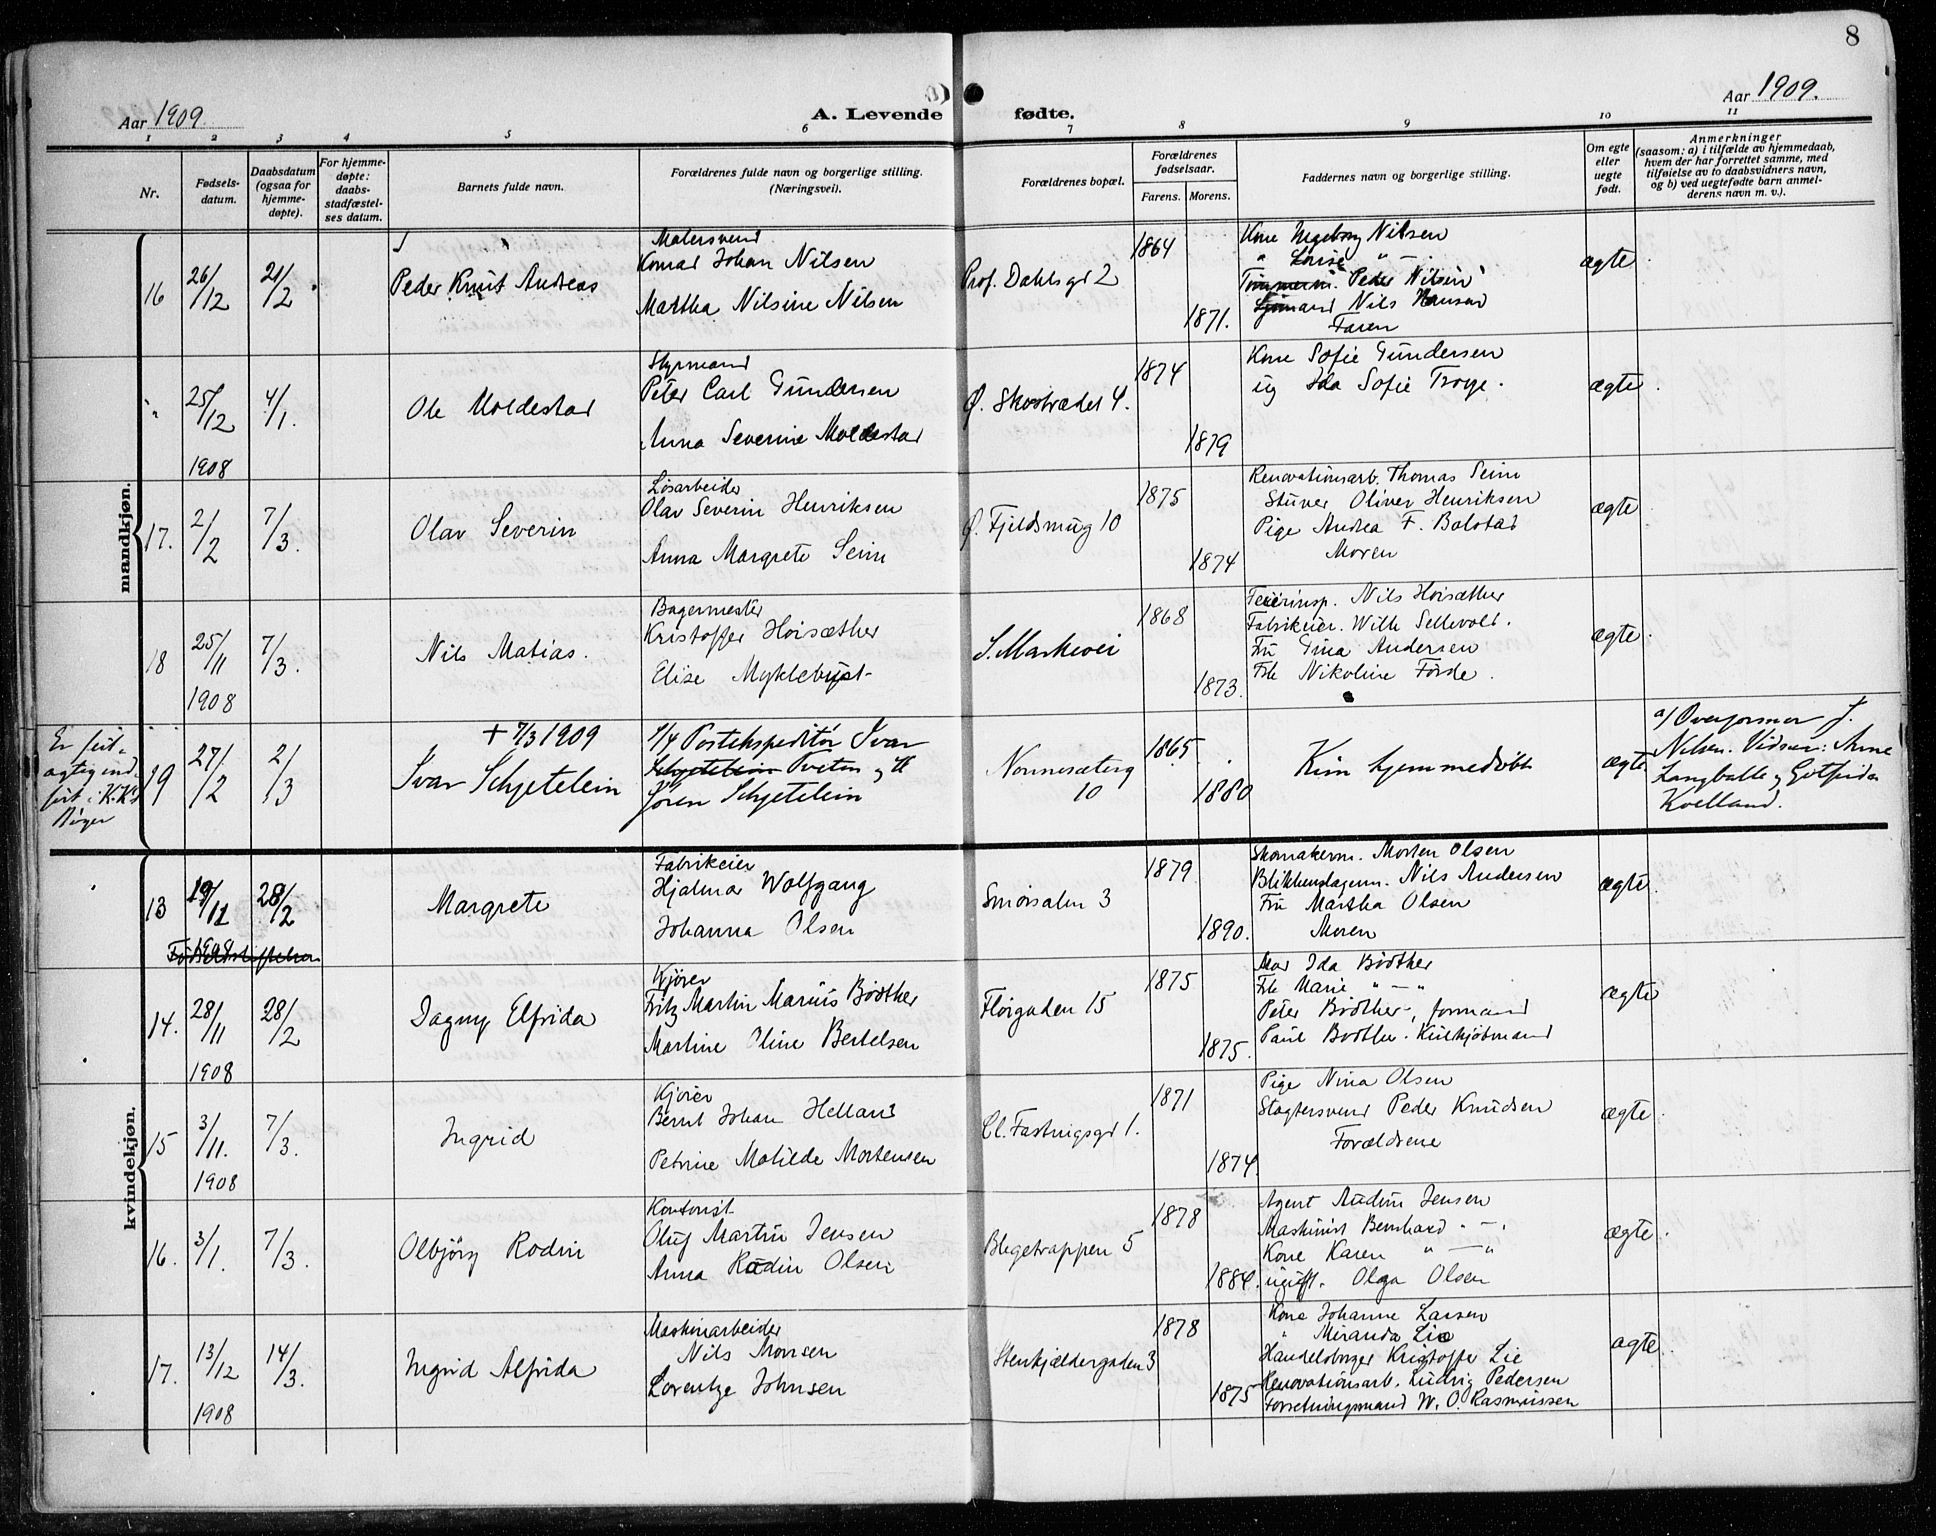 8
Aar 1909.
A. Levende fødte.
Aar 1909.
1 2 3 4 5 6 7 8 9 10 11
Nr.
Fødsels-
datum.
Daabsdatum
(ogsaa for
hjemme-
døpte).
For hjemme-
døpte:
daabs-
stadfæstel-
ses datum.
Barnets fulde navn.
Forældrenes fulde navn og borgerlige stilling.
(Næringsvei).
Forældrenes bopæl.
Forældrenes
fødselsaar.
Farens. Morens.
Faddernes navn og borgerlige stilling.
Om egte
eller
uegte
født.
Anmerkninger
(saasom: a) i tilfælde av hjemmedaab,
hvem der har forrettet samme, med
tilføielse av to daabsvidners navn,
og b) ved uegtefødte barn anmel-
derens navn m. v.).
mandkjøn.
16
26/12
21/2
Peder Knut Andreas
Malersvend
Konrad Johan Nilsen
Martha Nilsine Nilsen
Prof. Dahlsgt 2
1864
1871.
Kone Ingeborg Nilsen
" Louise " —
Tømmerm. Peder Nilsen
Sjømand Nils Hansen
Faren
ægte
"
25/12
1908
4/1.
Ole Moldestad
Styrmand
Peter Carl Gundersen
Anna Severine Moldestad
Ø. Skostrædet 4.
1874
1879
Kone Sofie Gundersen
ug Ida Sofie Troye.
ægte
17.
2/2
7/3.
Olav Severin
Løsarbeider
Olav Severin Henriksen
Anna Margrete Seim
Ø. Fjeldsmug 10
1875
1874
Renovationsarb. Thomas Seim
Stuver Oliver Henriksen
Pige Andrea F. Bolstad
Moren
ægte
18
25/11
1908
7/3.
Nils Matias.
Bagermester
Kristoffer Hoisæther
Elise Myklebust
S. Markevei
1868
1873.
Feierinsp. Nils Hoisæther
Fabrikeier. Wilh Sellevold.
Fru Gina Andersen
Frk Nikoline Førde.
ægte
19
27/2
2/3
+ 7/3 1909
Ivar Schjetelein
Postekspeditør Ivar
Schjetelein Tveten og H
Søren Schjetelein
Nonnesæterg
10
1865
1880
Kun hjemmedøbt
ægte
a/ Overjormor J.
Nilsen. Vidner: Arne
Langballe og Gotfrida
Kvelland.
kvindekjøn.
13
19/11
1908
28/2
Fødselsstiftelsen
Margrete
Fabrikeier
Hjalmar Wolfgang
Johanna Olsen
Smörsalen 3
1879
1890.
Skomakerm. Morten Olsen
Blikkenslagerm. Nils Andersen
Fru Martha Olsen
Moren
ægte
14.
28/11
1908
28/2
Dagny Elfrida
Kjörer
Fritz Martin Marius Bödtker
Martine Oline Bertelsen
Flörgaden 15
1875
1875.
Mor Ida Bödtker
Frk Marie " — "
Peter Bödtker, formand
Paul Bödtker. Kulkjöbmand
ægte
15
3/11.
1908
7/3.
Ingrid
Kjörer
Bernt Johan Helland
Petrine Matilde Mortensen
Cl. Fastingsgt 1.
1871
1874.
Pige Nina Olsen
Slagtersvend Peder Knudsen
Forældrene
ægte
16.
3/1.
7/3.
Olbjörg Rodin
Kontorist
Oluf Martin Jensen
Anna Rodin Olsen
Blegetrappen 5
1878
1884.
Agent Audun Jensen
Maskinist Bernhard " — "
Kone Karen " — "
ugift. Olga Olsen
ægte
17.
13/12
1908
14/3.
Ingrid Alfrida
Maskinarbeider
Nils Monsen
Lorentze Johnsen
Stenkjældergaden 3
1878
1875
Kone Johanne Larsen
" Miranda Lie
Handelsborger Kristoffer Lie
Renovationsarb. Ludvig Pedersen
Forretningsmand W. O. Rasmussen
ægte